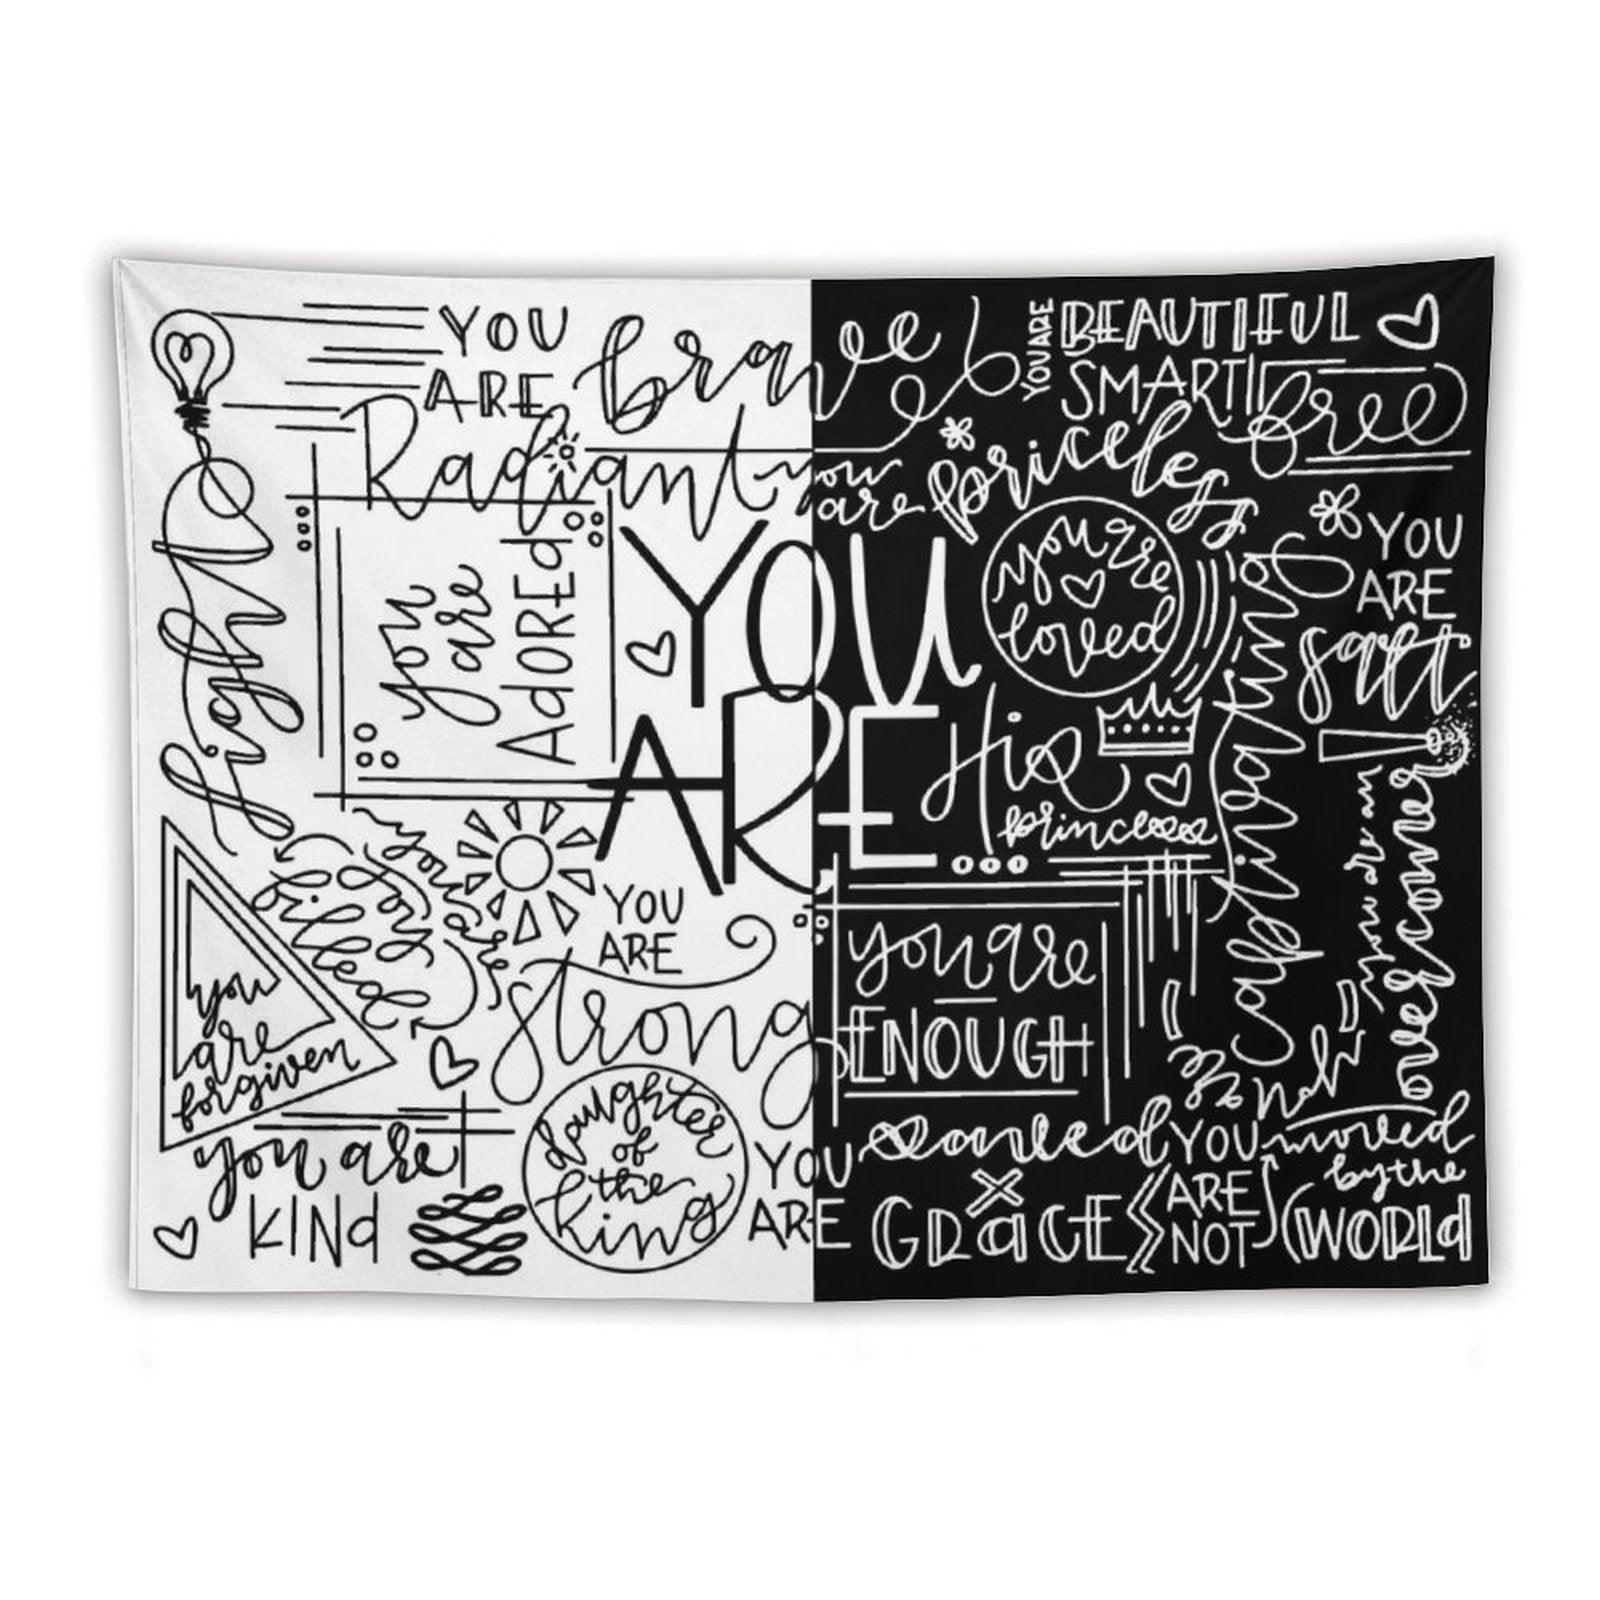 YOU
ARE
brave
Radiant
light
you
are
ADORED
YOU
ARE
His
princess
YOU ARE
BEAUTIFUL
SMART
free
you
are
priceless
you are
loved
YOU
ARE
salt
captivating
you are an
overcomer
you are
joy
filled
you
are
forgiven
YOU
ARE
strong
you are
ENOUGH
you are
KINd
daughter
of
the
king
YOU
ARE
saved
GRaCE
YOU
ARE
NOT
moved
by the
WORLd